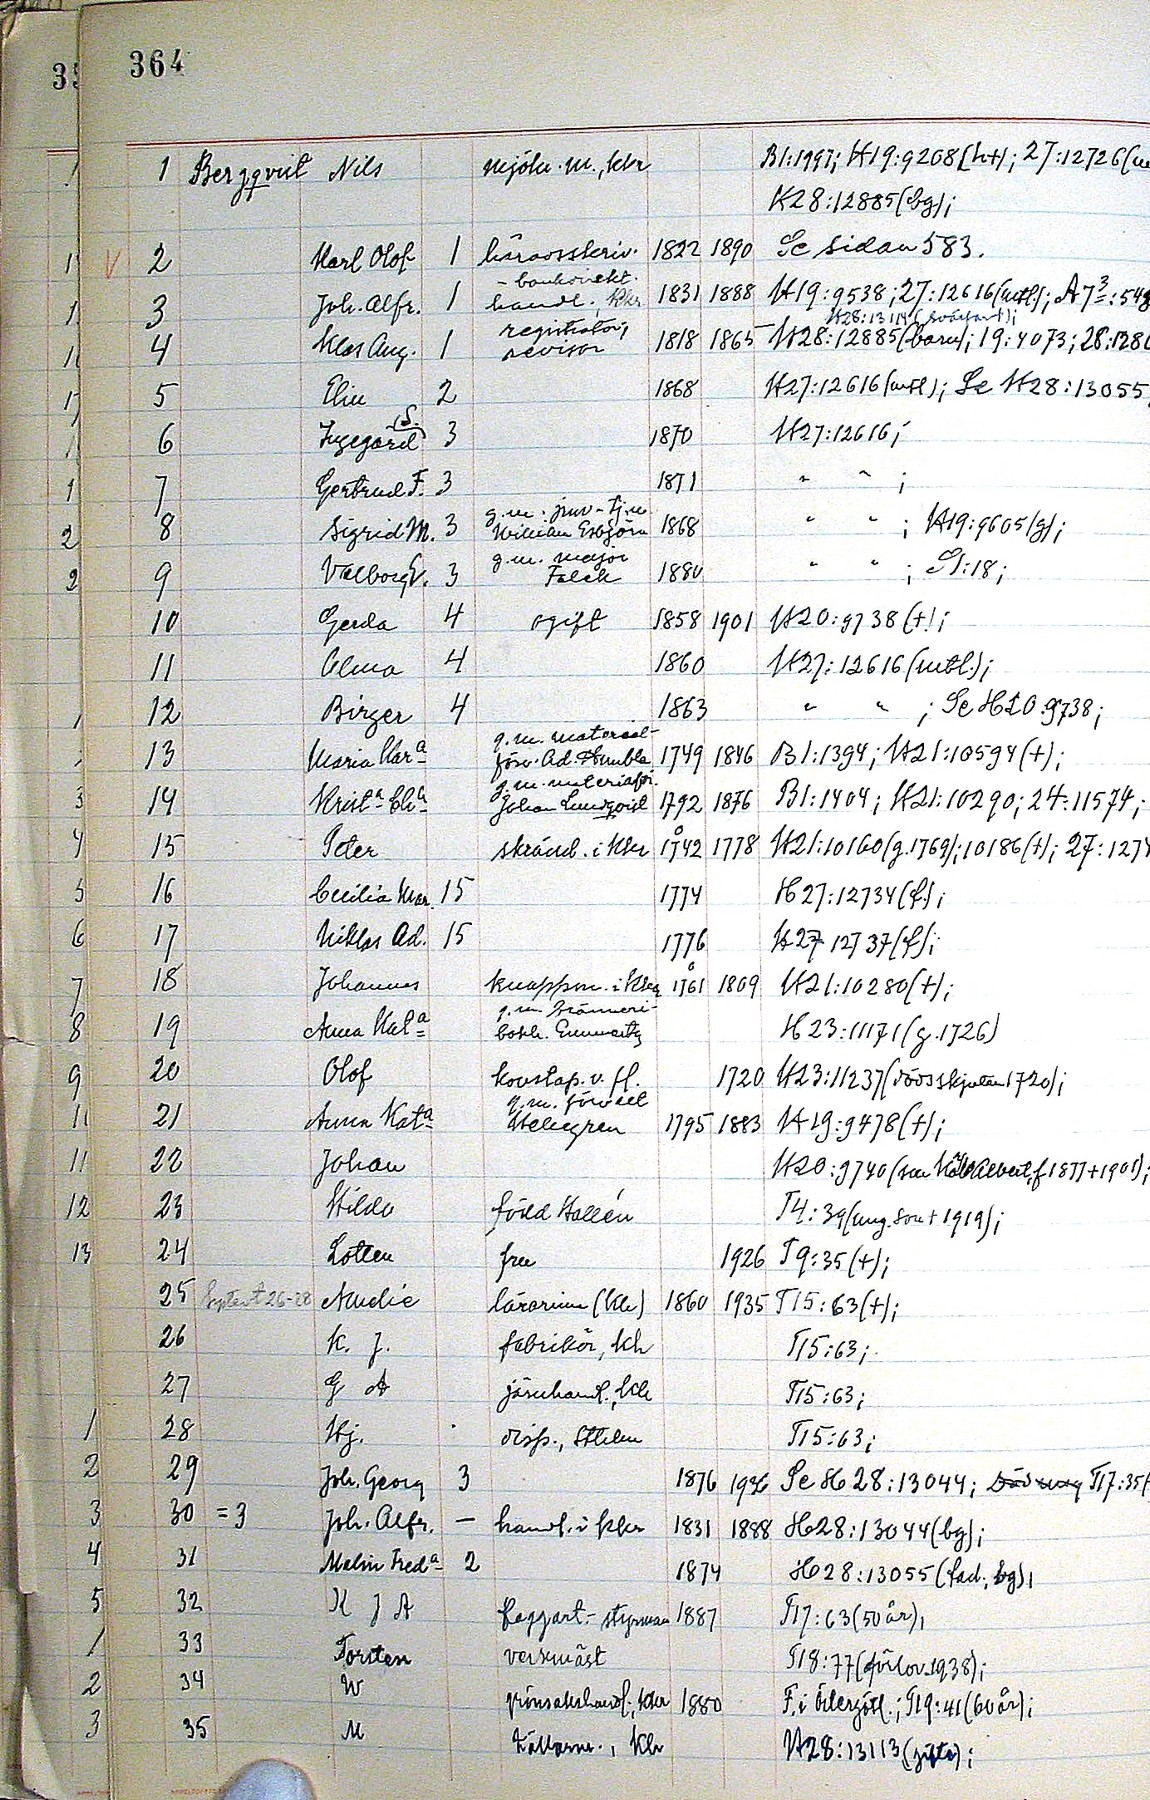 364
1 Bergqvist Nils mjöln. m., kkr B1:1997; H19:9208(h+); 27:12726(
H28:12885(bg);
V 2 Karl Olof 1 häradsskriv. 1822 1890 Se sidan 583.
3 Joh. Alfr. 1 - bankdirekt. handl., Kkr 1831 1888 H19:9538; 27:12616(mtl); A7³:548
H28:13114(svärfart);
4 Klas Aug. 1 registrator, revisor 1818 1865 H28:12885(barn); 19:4073; 28:1280
5 Elin 2 1868 H27:12616(mtl); Se H28:13055
6 Ingegärd (S.) 3 1870 H27:12616;
7 Gertrud F. 3 1871 " " ;
8 Sigrid M. 3 g.m. jurv-tj.m Wilhelm Esbjörn 1868 " " ; H19:9605(g);
9 Valborg V. 3 g.m. major Falck 1880 " " ; S1:18;
10 Gerda 4 ogift 1858 1901 H20:9738(+);
11 Alma 4 1860 H27:12616(mtl.);
12 Birger 4 1863 " " ; Se H20:9738;
13 Maria Kar^a g.m. material- förv. Ad. Humbla 1749 1846 B1:1394; H21:10594(+);
14 Krist^a Ch^a g.m. materialför. Johan Lundqvist 1792 1876 B1:1404; H21:10290; 24:11574;
15 Peter skräd. i Kkr 1742 1778 H21:10160(g.1769); 10186(+); 27:1274
16 Cecilia Mar. 15 1774 H27:12734(f);
17 Niklas Ad. 15 1776 H27 12737(f);
18 Johannes knappm. i Kkr 1761 1809 H21:10280(+);
19 Anna Kat^a g.m. Bränneri- bokh. H23:11171(g.1726)
20 Olof konstap. v. fl. 1720 H23:11237(dödsskjuten 1720);
21 Anna Kat^a g.m. förvalt Hellgren 1795 1883 H19:9478(+);
22 Johan H20:9740(son Albert, f 1877+1901);
23 Hilda född Hallén T4:39(ung. son + 1919);
24 Lotten fru 1926 T9:35(+);
25 26-28 Amelie lärarinna (Kh) 1860 1935 T15:63(+);
26 K. J. fabrikör, Kh T15:63;
27 G A järnhandl., Kh T15:63;
28 Hj. disp., Sthlm T15:63;
29 Joh. Georg 3 1876 1936 Se H28:13044; T17:35(
30 =3 Joh. Alfr. — handl. i Kkr 1831 1888 H28:13044(bg);
31 Malin Fred^a 2 1874 H28:13055(fad., bg);
32 K J A flaggart.- styrman 1887 T17:63(50 år),
33 Torsten verkmäst T18:77(förlov. 1938);
34 W grönsakshandl., Kkr 1880 F. i Östergötl.; T19:41(60 år);
35 M källarm., Kh H28:13113(gifte);